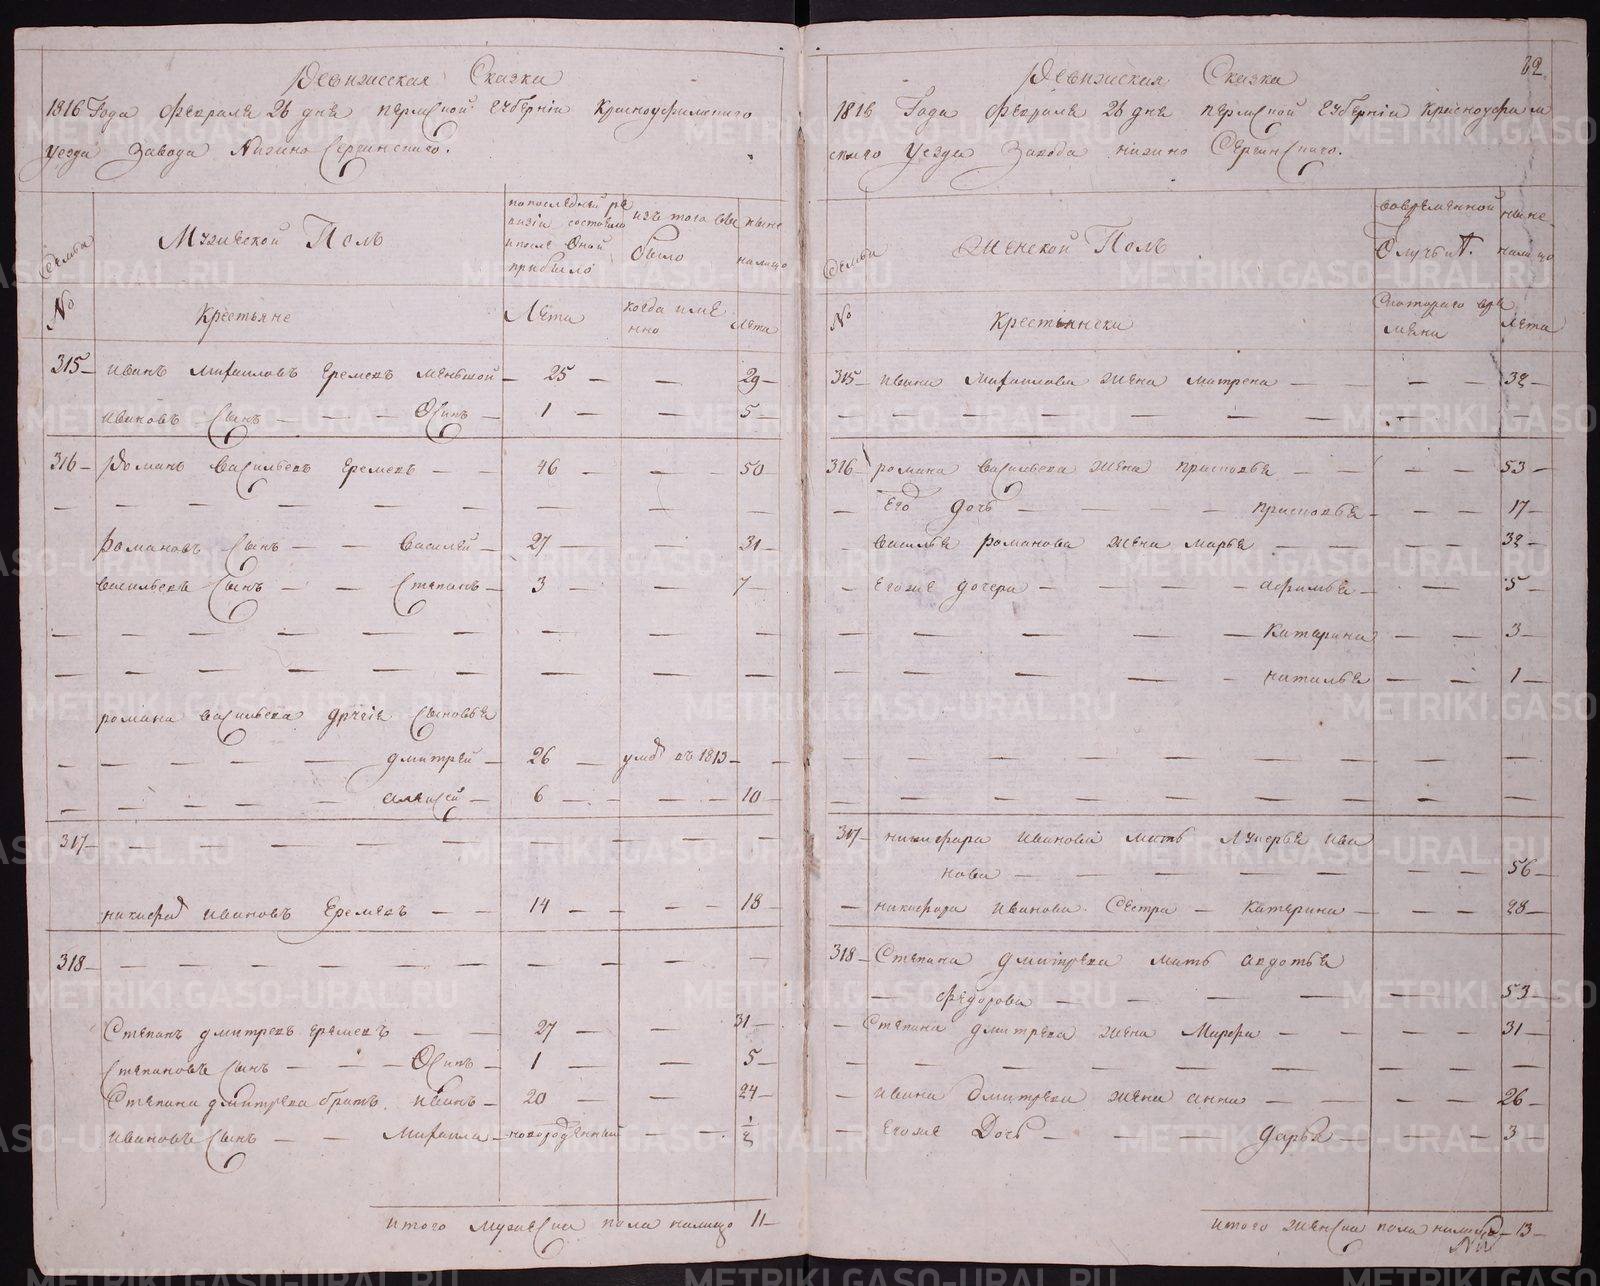 Ревижская Сказка
1816 Года Февраля 26 дня пермской губернии Красноуфимского
уезда Завода Нижно Сергинскаго.
Семьи
Мужеской Полъ
по последней ре
визiи состояло
и после оной
прибыло
изъ того вы
было
ныне
налицо
№
Крестьяне
Лета
когда име
нно
лета
315 иванъ михаиловъ Еремевъ меньшой 25 — 29
ивановъ Сынъ Осипъ 1 — 5
316 Романъ Васильевъ Еремевъ 46 — 50
романовъ сынъ василей 27 — 31
васильевъ Сынъ Степанъ 3 — 7
романа васильева другiя Сыновья
дмитрей 26 умре въ 1813
алексей 6 — 10
317
никифор ивановъ Еремевъ 14 — 18
318
Степанъ дмитревъ еремевъ 27 — 31
Степановъ Сынъ Осипъ 1 — 5
Степана дмитрева братъ иванъ 20 — 24
ивановъ Сынъ михаила новорожденный — ½
итого мужеска пола налицо 11
62
Ревижская Сказка
1816 Года Февраля 26 дня пермской губернии Красноуфим
скаго уезда Завода нижно Сергинскаго.
Семьи
Женской Полъ
во временной
Отлучкѣ
ныне
налицо
№
Крестьянски
Скотораго вре
мени
лета
315 ивана михаилова жена матрена 32
316 романа васильева жена прасковья 53
Его дочь прасковья 17
василья романова жена марья 32
Егоже дочери афимья 5
катерина 3
наталья 1
317 никифора иванова мать лукерья ива
нова 56
никифора иванова Сестра катерина 28
318 Степана дмитрева мать авдотья
федорова 53
Степана дмитрева жена Марфа 31
ивана дмитрева жена анна 26
Егоже Дочь дарья 3
итого женска пола налицо 13